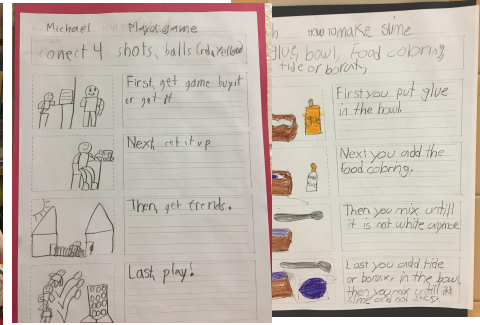 Michael Plays game
conect 4 shots, balls (red, yellow)
First, get game buy it
or get it
Next, set it up
Then, get frends.
Last, play!
how to make slime
glue, bowl, Food coloring
tide or borax,
First you put glue
in the bowl.
glue
Next you add the
food coloring.
Then you mix untill
it is not white anymore
Last you add tide
or borax, in the bowl
then you mix untill it
slime and not sticky.